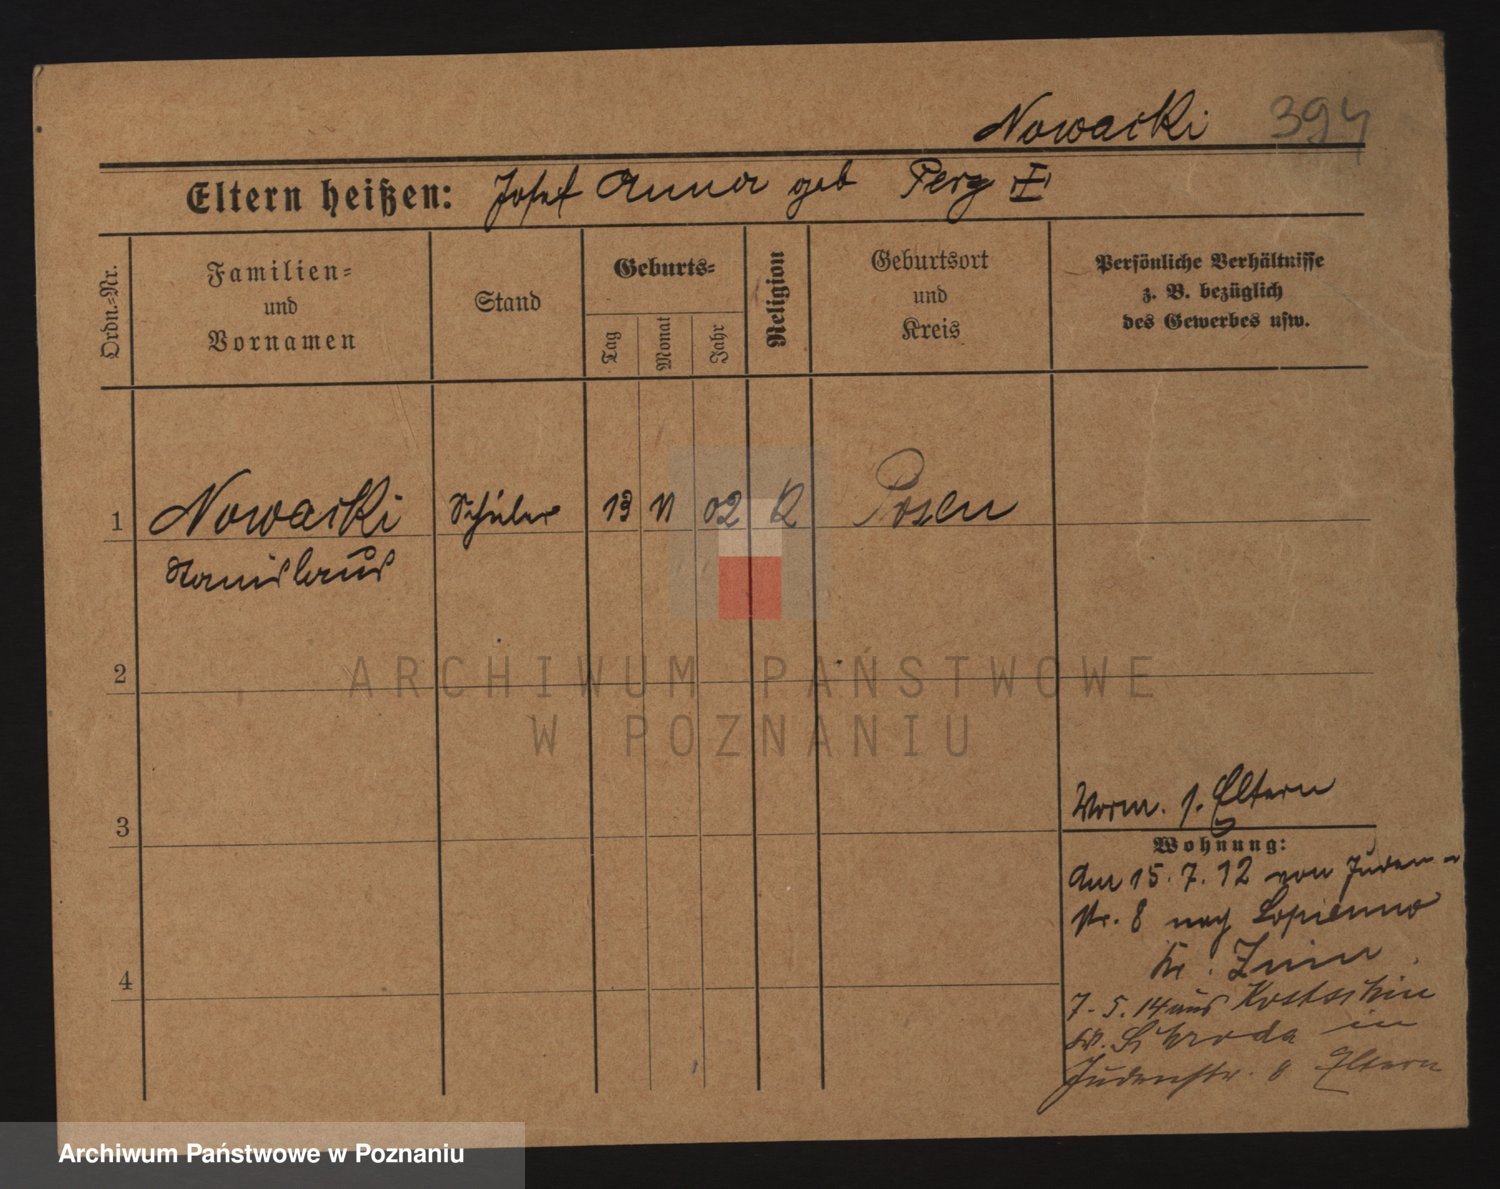 Nowacki 394
Eltern heißen: Josef Anna geb Perz II
Ordn.=Nr.
Familien=
und
Vornamen
Stand
Geburts=
Tag
Monat
Jahr
Religion
Geburtsort
und
Kreis
Persönliche Verhältnisse
z. B. bezüglich
des Gewerbes usw.
1 Nowacki Schüler 13 11 02 K Posen
Stanislaus
2
3
4
Vorm. s. Eltern
Wohnung:
Am 15.7.12 von Juden-
str. 8 nach Lopienno
Kr. Znin
7.5.14 aus
Kr. Schroda in
Judenstr. 8 Eltern
ARCHIWUM PAŃSTWOWE
W POZNANIU
Archiwum Państwowe w Poznaniu